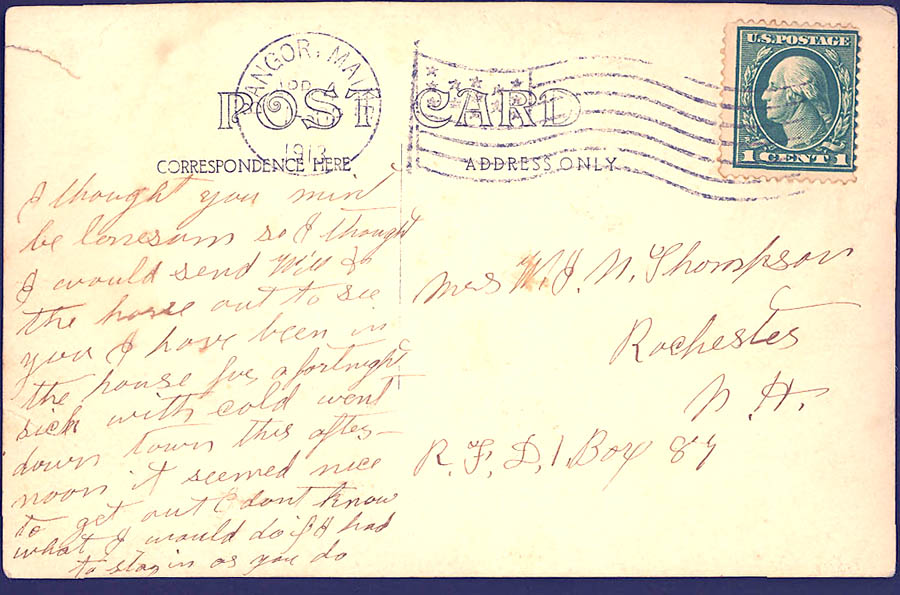 BANGOR, MAINE
APR 4
1913
U.S. POSTAGE
1 CENT 1
POST CARD
CORRESPONDENCE HERE
ADDRESS ONLY
I thought you
be lonesum so I thought
I would send Will &
the horse out to see
you I have been in
the house for a fortnight
sick with cold went
down town this after-
noon it seemed nice
to get out I dont know
what I would do if I had
to stay in as you do
Mrs W. J. N. Thompson
Rochester
N. H.
R. F. D. 1, Box 87